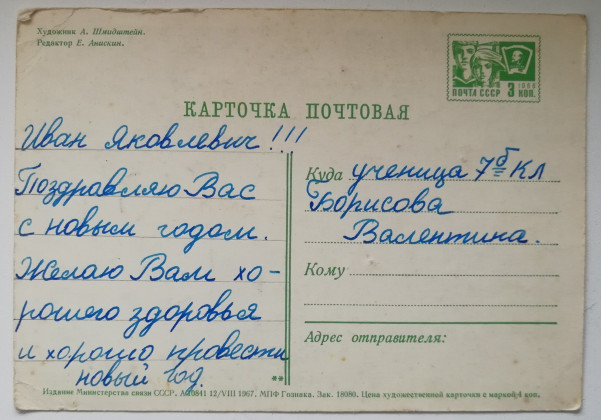 Художник А. Шмидштейн.
Редактор Е. Анискин.
ПОЧТА СССР 3 КОП.
1966
КАРТОЧКА ПОЧТОВАЯ
Иван Яковлевич!!!
Поздравляю Вас
с новым годом.
Желаю Вам хо-
рошего здоровья
и хорошо провести
новый год.
Куда ученица 7б Кл
Борисова
Валентина.
Кому
Адрес отправителя:
**
Издание Министерства связи СССР. А 10841 12/VIII 1967. МПФ Гознака. Зак. 18080. Цена художественной карточки с маркой 4 коп.